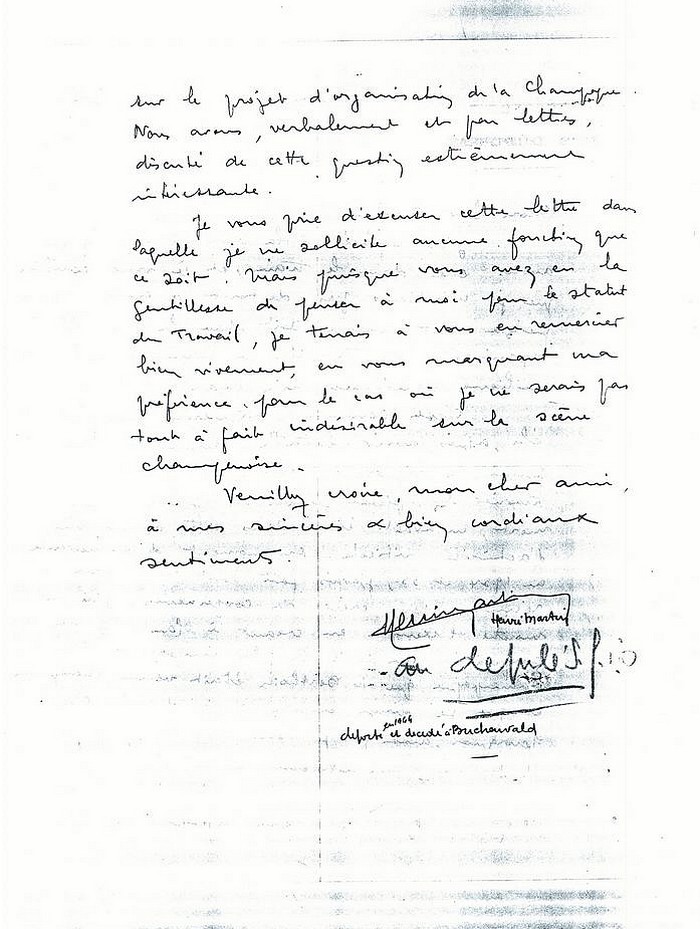 sur le projet d'organisation de la Champagne.
Nous avons, verbalement et par lettres,
discuté de cette question extrêmement
intéressante.
Je vous prie d'excuser cette lettre dans
laquelle je ne sollicite aucune fonction que
ce soit. Mais puisque vous avez eu la
gentillesse de penser à moi pour le statut
du Travail, je tenais à vous en remercier
bien vivement, en vous marquant ma
préférence pour le cas où je ne serais pas
tout à fait indésirable sur la scène
champenoise.
Veuillez croire, mon cher ami,
à mes sincères & bien cordiaux
sentiments.
Henri Martin
député S.F.i.O
en 1944
deporté et decedé à Buchenwald